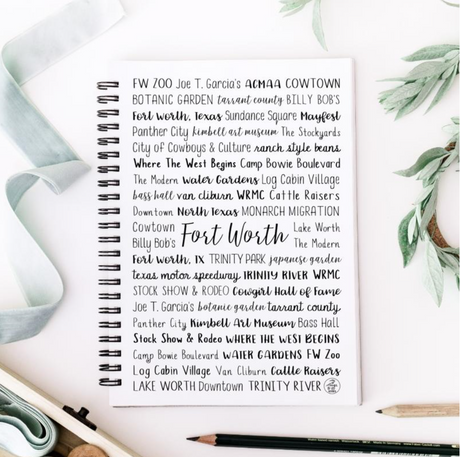 FW ZOO Joe T. Garcia's ACMAA COWTOWN
BOTANIC GARDEN tarrant county BILLY BOB'S
Fort Worth, Texas Sundance Square Mayfest
Panther City kimbell art museum The Stockyards
City of Cowboys & Culture ranch style beans
Where The West Begins Camp Bowie Boulevard
The Modern Water Gardens Log Cabin Village
bass hall van cliburn WRMC Cattle Raisers
Downtown North Texas MONARCH MIGRATION
Cowtown Fort Worth Lake Worth
Billy Bob's The Modern
Fort Worth, TX TRINITY PARK japanese garden
texas motor speedway TRINITY RIVER WRMC
STOCK SHOW & RODEO Cowgirl Hall of Fame
Joe T. Garcia's botanic garden tarrant county
Panther City Kimbell Art Museum Bass Hall
Stock Show & Rodeo WHERE THE WEST BEGINS
Camp Bowie Boulevard WATER GARDENS FW Zoo
Log Cabin Village Van Cliburn Cattle Raisers
LAKE WORTH Downtown TRINITY RIVER